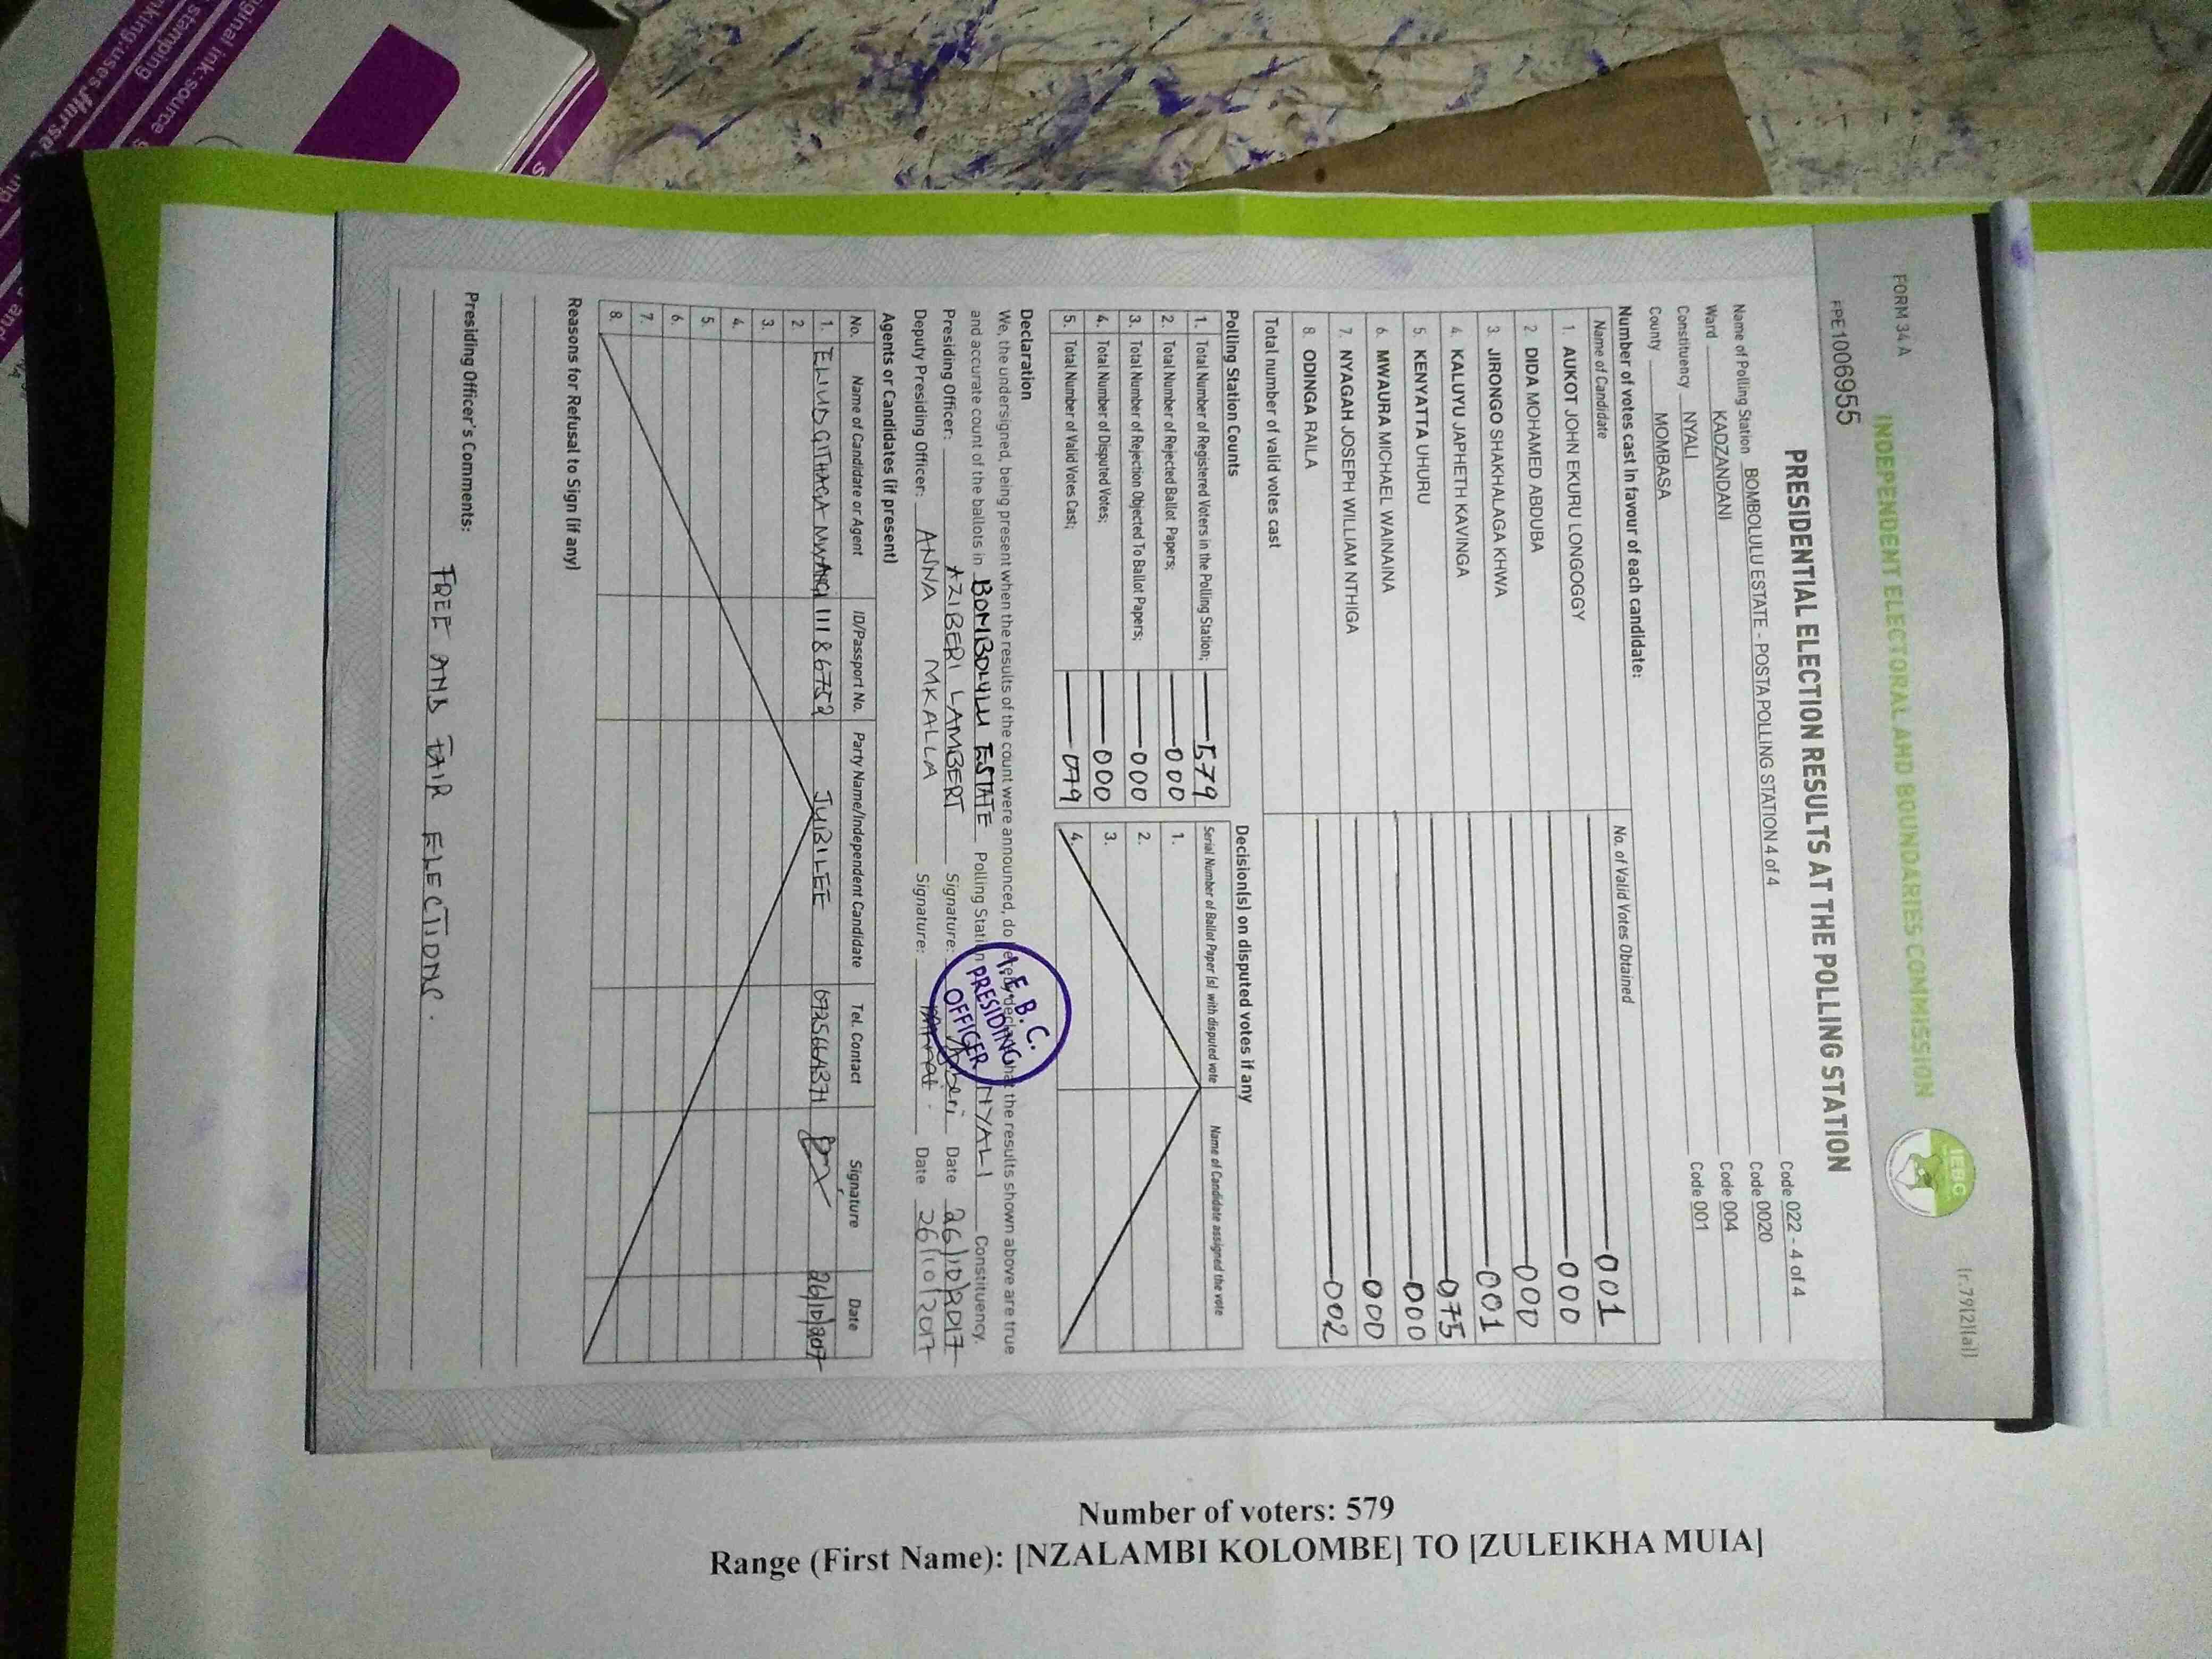 FORM 34 A
(r.79(2)(a))
INDEPENDENT ELECTORAL AND BOUNDARIES COMMISSION
IEBC
PRESIDENTIAL ELECTION RESULTS AT THE POLLING STATION
Name of Polling Station BOMBOLULU ESTATE - POSTA POLLING STATION 4 of 4 Code 022 - 4 of 4
Ward KADZANDANI Code 0020
Constituency NYALI Code 004
County MOMBASA Code 001
Number of votes cast in favour of each candidate:
Name of Candidate No. of Valid Votes Obtained
1. AUKOT JOHN EKURU LONGOGGY 001
2 DIDA MOHAMED ABDUBA 000
3. JIRONGO SHAKHALAGA KHWA 000
4. KALUYU JAPHETH KAVINGA 001
5. KENYATTA UHURU 075
6. MWAURA MICHAEL WAINAINA 000
7. NYAGAH JOSEPH WILLIAM NTHIGA 000
8. ODINGA RAILA 002
Total number of valid votes cast
Polling Station Counts
1. Total Number of Registered Voters in the Polling Station; 579
2. Total Number of Rejected Ballot Papers; 000
3. Total Number of Rejection Objected To Ballot Papers; 000
4. Total Number of Disputed Votes; 000
5. Total Number of Valid Votes Cast; 079
Decision(s) on disputed votes if any
Serial Number of Ballot Paper (s) with disputed vote Name of Candidate assigned the vote
1.
2.
3.
4.
Declaration
We, the undersigned, being present when the results of the count were announced, do hereby declare that the results shown above are true
and accurate count of the ballots in BOMBOLULU ESTATE Polling Station NYALI Constituency.
Presiding Officer: AZIBERI LAMBERT Signature: Date 26/10/2017
Deputy Presiding Officer: ANNA MKALLA Signature: Date 26/10/2017
I.E.B.C.
PRESIDING
OFFICER
Agents or Candidates (if present)
No. Name of Candidate or Agent ID/Passport No. Party Name/Independent Candidate Tel. Contact Signature Date
1. ELIUD GITHAGA MWANGI 11186752 JUBILEE 0725664371 26/10/2017
2
3.
4.
5.
6.
7.
8.
Reasons for Refusal to Sign (if any)
Presiding Officer's Comments:
FREE AND FAIR ELECTIONS.
Number of voters: 579
Range (First Name): [NZALAMBI KOLOMBE] TO [ZULEIKHA MUIA]
ginal ink:source
stamping